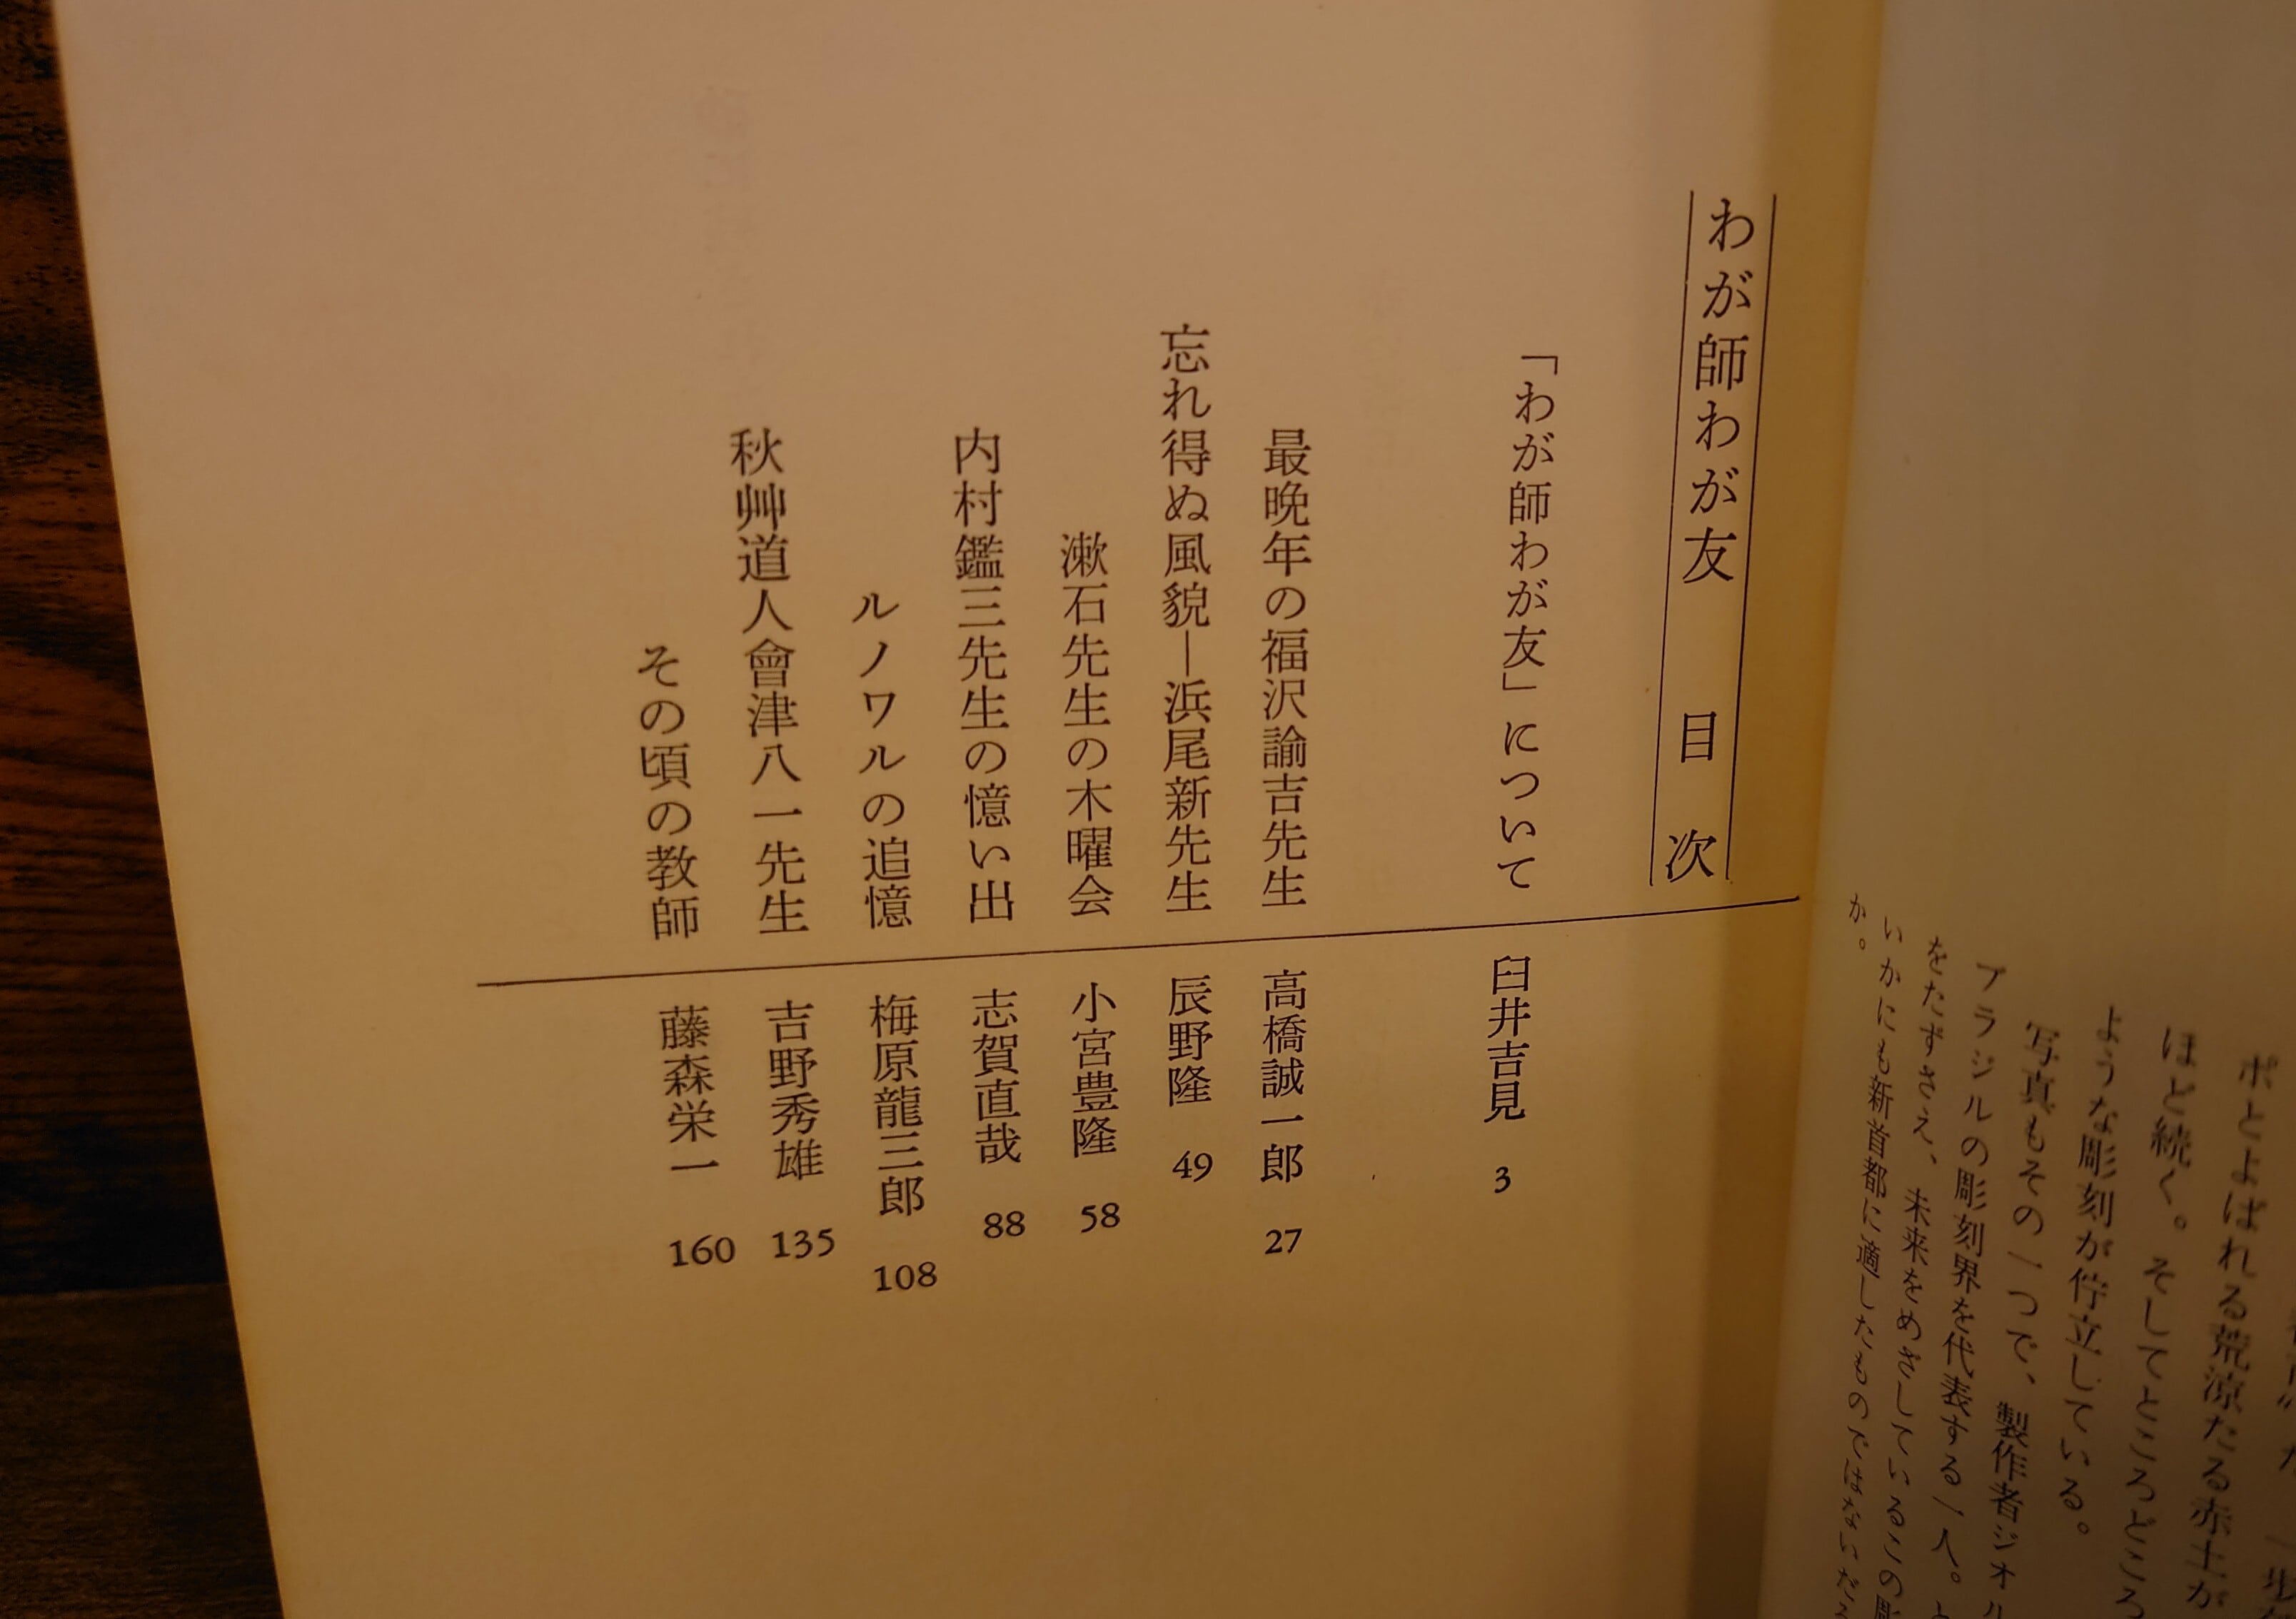 ポとよばれる荒涼たる赤土が
ほど続く。そしてところどころ
ような彫刻が佇立している。
写真もその一つで、製作者ジオル
ブラジルの彫刻界を代表する一人。と
をたずさえ、未来をめざしているこの彫
いかにも新首都に適したものではないだろ
か。
わが師わが友 目次
「わが師わが友」について 臼井吉見 3
最晩年の福沢諭吉先生 高橋誠一郎 27
忘れ得ぬ風貌―浜尾新先生 辰野隆 49
漱石先生の木曜会 小宮豊隆 58
内村鑑三先生の憶い出 志賀直哉 88
ルノワルの追憶 梅原龍三郎 108
秋艸道人會津八一先生 吉野秀雄 135
その頃の教師 藤森栄一 160